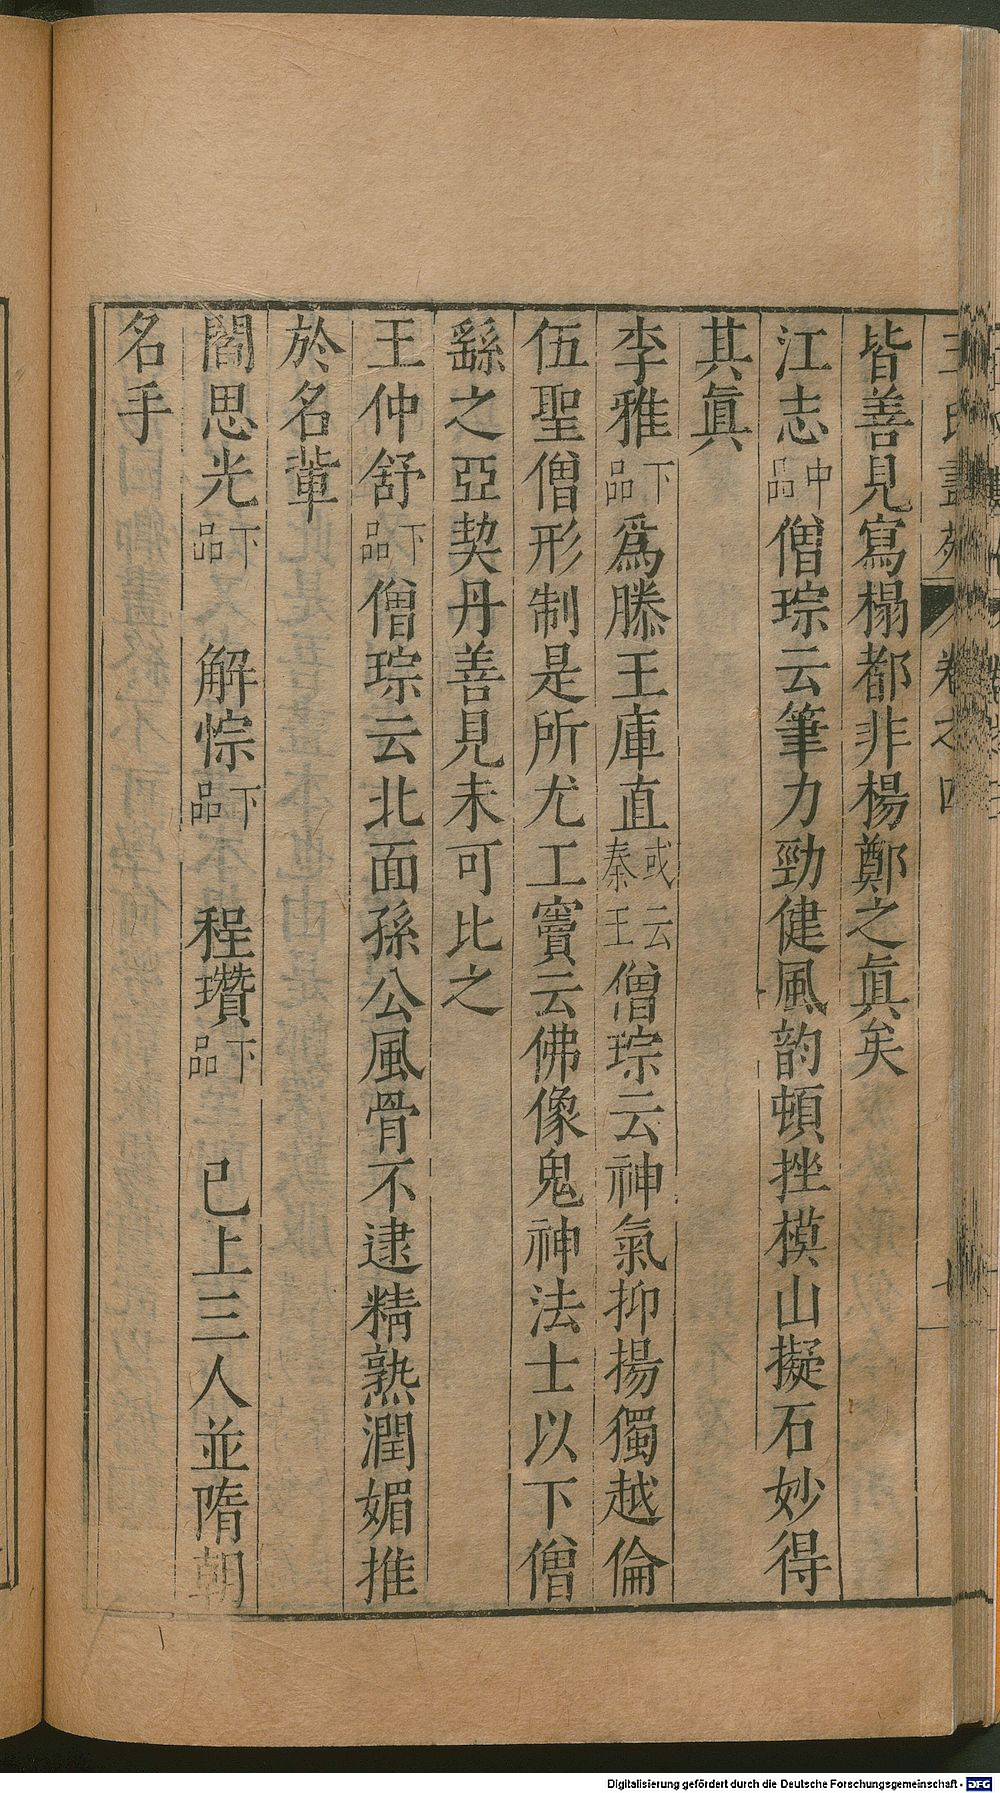 王氏畫苑 卷之四
皆善見寫榻都非楊鄭之眞矣
江志中品僧琮云筆力勁健風韵頓挫模山擬石妙得
其眞
李雅下品爲滕王庫直或云秦王僧琮云神氣抑揚獨越倫
伍聖僧形制是所尤工竇云佛像鬼神法士以下僧
繇之亞契丹善見未可比之
王仲舒下品僧琮云北面孫公風骨不逮精熟潤媚推
於名輩
閻思光下品 解悰下品 程瓚下品 已上三人並隋朝
名手
Digitalisierung gefördert durch die Deutsche Forschungsgemeinschaft - DFG